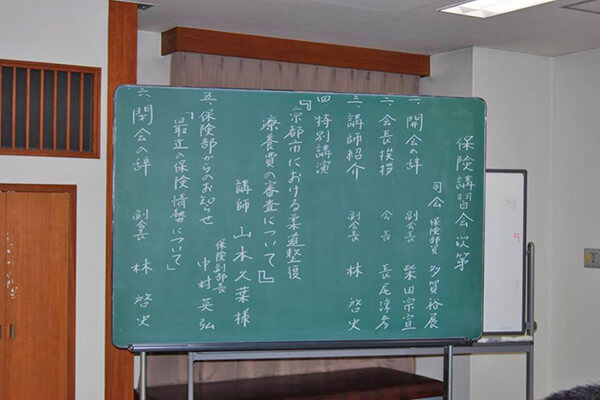 保険講習会次第
司会 保険部員 多賀裕展
一、開会の辞 副会長 柴田宗宣
二、会長挨拶 会長 長尾淳彦
三、講師紹介 副会長 林 啓史
四、特別講演
『京都市における柔道整復
療養費の審査について』
講師 山本久葉様
五、保険部からのお知らせ 保険副部長 中村英弘
「最近の保険情勢について」
六、閉会の辞 副会長 林 啓史